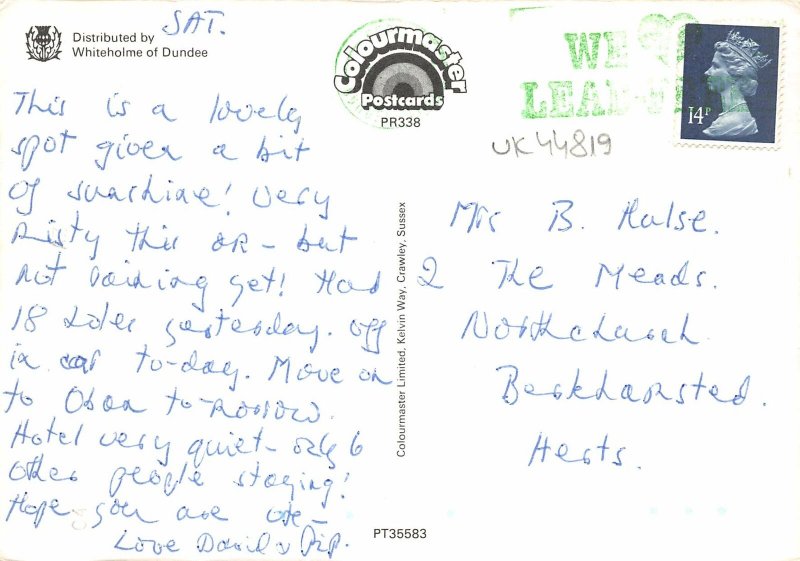 SAT.
Distributed by
Whiteholme of Dundee
Colourmaster
Postcards
PR338
WE
LEAE
14P
UK44819
This is a lovely
spot given a bit
of sunshine! Very
misty this am – but
not raining yet! Had
18 holes yesterday. Off
in car to-day. Move on
to Oban to-morrow.
Hotel very quiet – only 6
other people staying!
Hope you are OK –
Love David & Pip.
Colourmaster Limited, Kelvin Way, Crawley, Sussex
Mrs B. Hulse.
2 The Meads.
Northchurch
Berkhamsted.
Herts.
PT35583